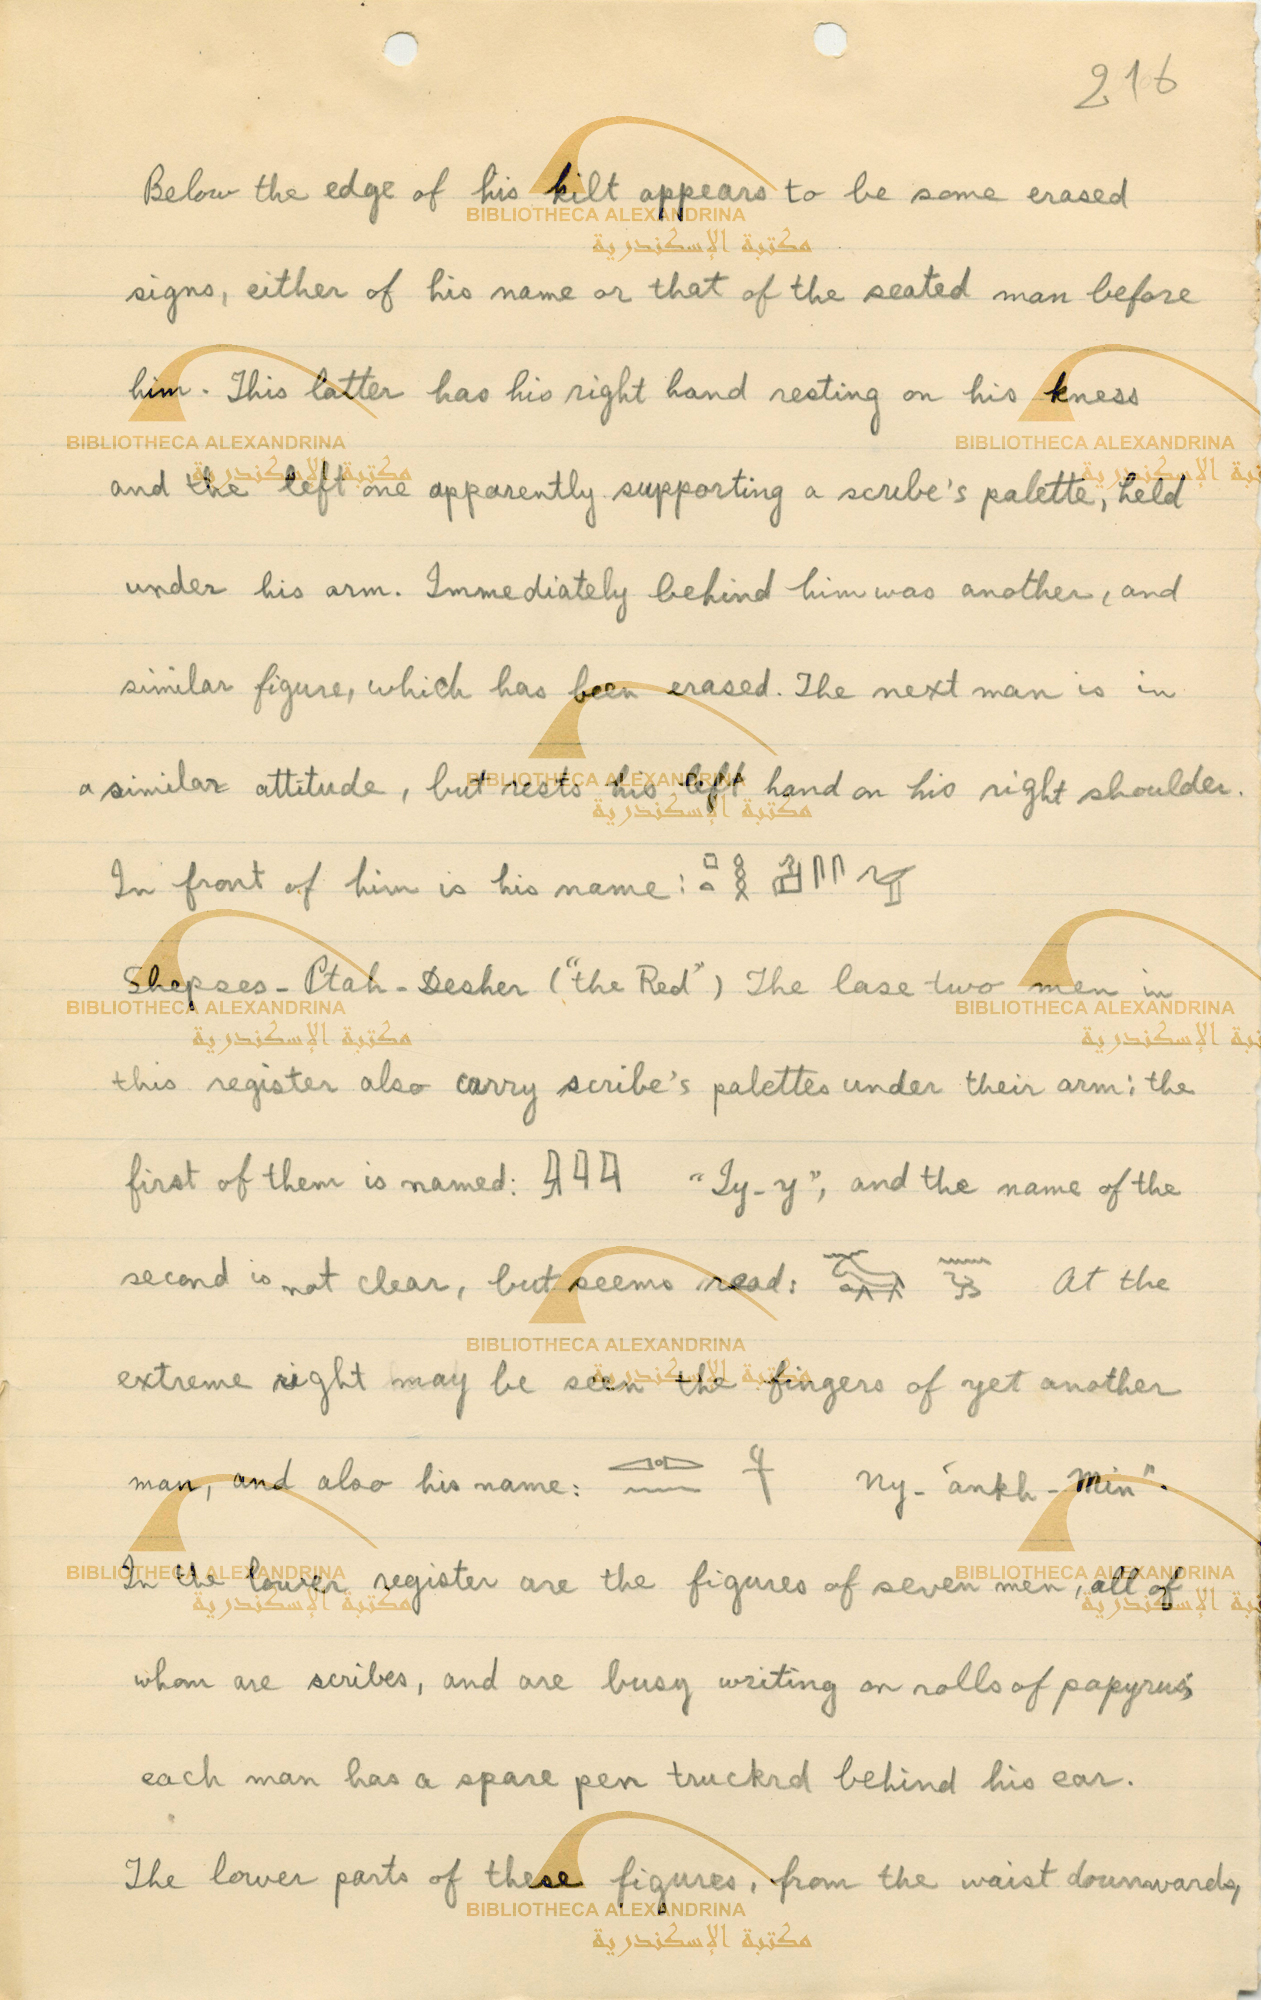 216
Below the edge of his kilt appears to be some erased
signs, either of his name or that of the seated man before
him. This latter has his right hand resting on his kness
and the left one apparently supporting a scribe's palette, held
under his arm. Immediately behind him was another, and
similar figure, which has been erased. The next man is in
a similar attitude, but rests his left hand on his right shoulder.
In front of him is his name:
Shepses-Ptah-Desher ("the Red") The lase two men in
this register also carry scribe's palettes under their arm; the
first of them is named: "Iy-y", and the name of the
second is not clear, but seems read: At the
extreme right may be seen the fingers of yet another
man, and also his name: Ny-'ankh-Min".
In the lower register are the figures of seven men, all of
whom are scribes, and are busy writing on rolls of papyrus;
each man has a spare pen truckrd behind his ear.
The lower parts of these figures, from the waist downwards,
BIBLIOTHECA ALEXANDRINA
مكتبة الإسكندرية